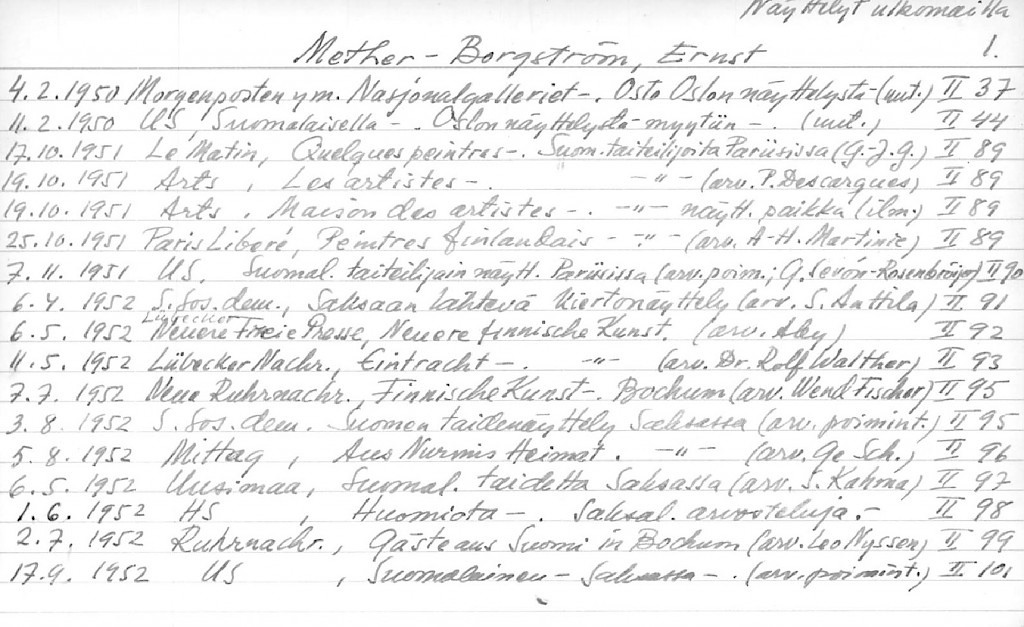 Näyttelyt ulkomailla
1.
Mether-Borgström, Ernst
4.2.1950 Morgenposten ym. Nasjonalgalleriet-. Osto Oslon näyttelystä-(uut.) II 37
11.2.1950 US, Suomalaisella -. Oslon näyttelystä myytiin -. (uut.) II 44
17.10.1951 Le Matin, Quelques peintres-. Suom. taiteilijoita Pariisissa (G.-J.G.) II 89
19.10.1951 Arts, Les artistes-. -"- (arv. P. Descargues) II 89
19.10.1951 Arts, Maison des artistes-. -"- näytt. paikka (ilm.) II 89
25.10.1951 Paris Liberé, Peintres finlandais - -"- (arv. A-H. Martinie) II 89
7.11.1951 US, Suomal. taiteilijain näytt. Pariisissa (arv. poim.; G. Sevón-Rosenbröijer) II 90
6.4.1952 S. Sos. dem., Saksaan lähtevä kiertonäyttely (arv. S. Anttila) II 91
Lübecker
6.5.1952 Neuere Freie Presse, Neuere finnische Kunst. (arv. Aky) II 92
11.5.1952 Lübecker Nachr., Eintracht -. -"- (arv. Dr. Rolf Walther) II 93
7.7.1952 Neue Ruhrnachr., Finnische Kunst-. Bochum (arv. Wend Fischer) II 95
3.8.1952 S. Sos. dem. Suomen taidenäyttely Saksassa (arv. poimint.) II 95
5.8.1952 Mittag, Aus Nurmis Heimat. -"- (arv. Ge Sch.) II 96
6.5.1952 Uusimaa, Suomal. taidetta Saksassa (arv. S. Kahma) II 97
1.6.1952 HS, Huomiota -. Saksal. arvosteluja.- II 98
2.7.1952 Ruhrnachr., Gäste aus Suomi in Bochum (arv. Leo Nyssen) II 99
17.9.1952 US, Suomalainen - Saksassa -. (arv. poimint.) II 101